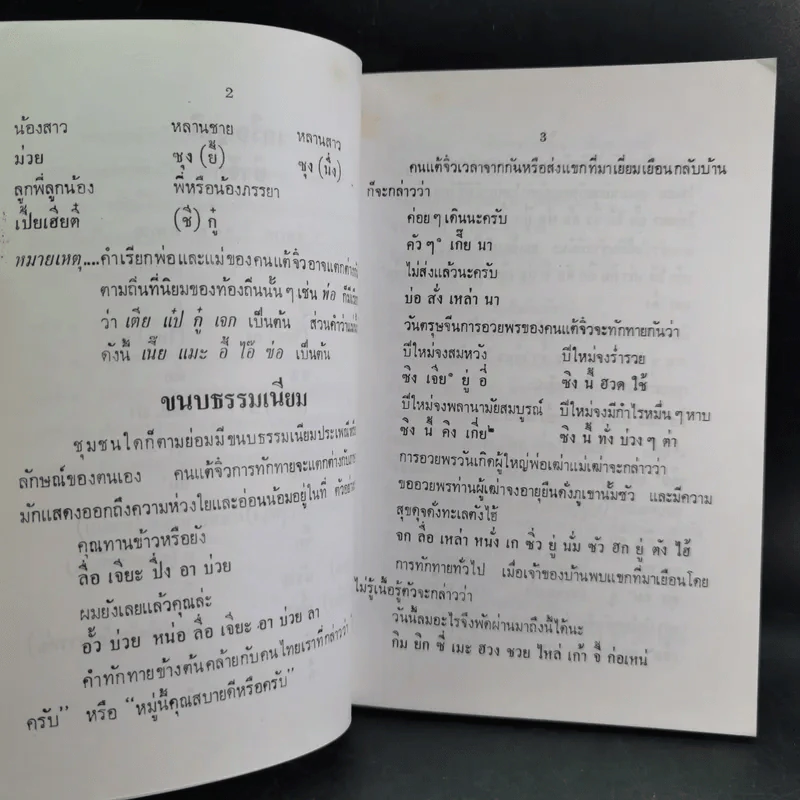 2
น้องสาว หลานชาย หลานสาว
ม่วย ซุง (ยี้) ซุง (นึ่ง)
ลูกพี่ลูกน้อง พี่หรือน้องภรรยา
เปียเฮียตี๋ (ซี) กู๋
หมายเหตุ....คำเรียกพ่อและแม่ของคนแต้จิ๋วอาจแตกต่างกัน
ตามถิ่นที่นิยมของท้องถิ่นนั้น ๆ เช่น พ่อ
ว่า เตีย แป๋ กู๋ เจก เป็นต้น ส่วนคำว่าแม่
ดังนี้ เนี้ย แมะ อี๊ ไอ๊ ข่อ เป็นต้น
ขนบธรรมเนียม
ชุมชนใดก็ตามย่อมมีขนบธรรมเนียมประเพณี
ลักษณ์ของตนเอง คนแต้จิ๋วการทักทายจะแตกต่างกับ
มักแสดงออกถึงความห่วงใยและอ่อนน้อมอยู่ในที่
คุณทานข้าวหรือยัง
ลื่อ เจียะ ปึ่ง อา บ่วย
ผมยังเลยแล้วคุณล่ะ
อั้ว บ่วย หน่อ ลื่อ เจียะ อา บ่วย ลา
คำทักทายข้างต้นคล้ายกับคนไทยเราที่กล่าวว่า
ครับ" หรือ "หมู่นี้คุณสบายดีหรือครับ"
3
คนแต้จิ๋วเวลาจากกันหรือส่งแขกที่มาเยี่ยมเยือนกลับบ้าน
ก็จะกล่าวว่า
ค่อย ๆ เดินนะครับ
คัว ๆ ° เกี๊ย นา
ไม่ส่งแล้วนะครับ
บ่อ สั่ง เหล่า นา
วันตรุษจีนการอวยพรของคนแต้จิ๋วจะทักทายกันว่า
ปีใหม่จงสมหวัง ปีใหม่จงร่ำรวย
ซิง เจีย° ยู่ อี่ ซิง นี้ ฮวด ใช้
ปีใหม่จงพลานามัยสมบูรณ์ ปีใหม่จงมีกำไรหมื่น ๆ หาบ
ซิง นี้ คิง เกี่ย๒ ซิง นี้ ทั่ง บ่วง ๆ ต่า
การอวยพรวันเกิดผู้ใหญ่พ่อเฒ่าแม่เฒ่าจะกล่าวว่า
ขออวยพรท่านผู้เฒ่าจงอายุยืนดั่งภูเขานั้มซัว และมีความ
สุขดุจดั่งทะเลตังไฮ้
จก ลื่อ เหล่า หนั่ง เก ซิ่ว ยู่ นั่ม ซัว ฮก ยู่ ตัง ไฮ้
การทักทายทั่วไป เมื่อเจ้าของบ้านพบแขกที่มาเยือนโดย
ไม่รู้เนื้อรู้ตัวจะกล่าวว่า
วันนี้ลมอะไรจึงพัดผ่านมาถึงนี้ได้นะ
กิม ยิก ซี่ เมะ ฮวง ชวย ไหล่ เก้า จี้ ก่อเหน่